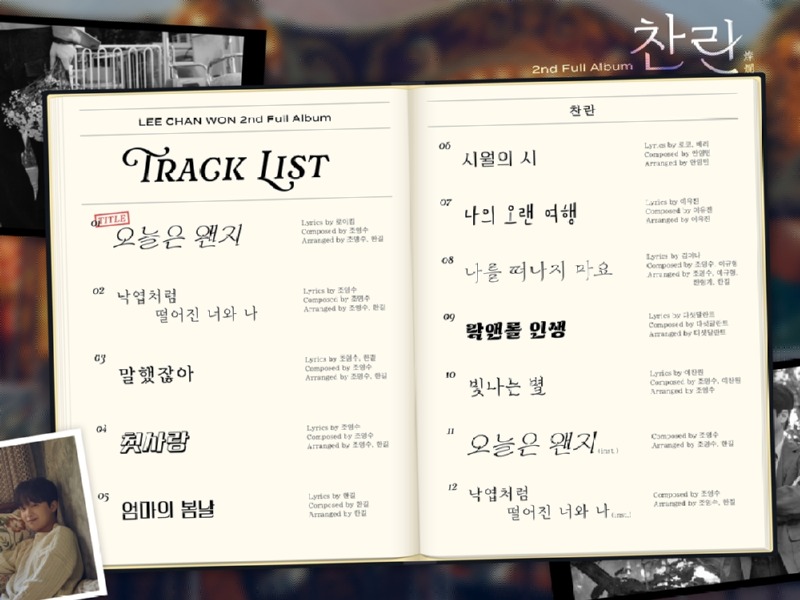 찬란
燦爛
2nd Full Album
LEE CHAN WON 2nd Full Album
TRACK LIST
01
TITLE
오늘은 왠지
Lyrics by 로이킴
Composed by 조영수
Arranged by 조영수, 한길
02
낙엽처럼
떨어진 너와 나
Lyrics by 조영수
Composed by 조영수
Arranged by 조영수, 한길
03
말했잖아
Lyrics by 조영수, 한길
Composed by 조영수
Arranged by 조영수, 한길
04
첫사랑
Lyrics by 조영수
Composed by 조영수
Arranged by 조영수, 한길
05
엄마의 봄날
Lyrics by 한길
Composed by 한길
Arranged by 한길
찬란
06
시월의 시
Lyrics by
Composed by
Arranged by
07
나의 오랜 여행
Lyrics by 이유진
Composed by 이유진
Arranged by 이유진
08
나를 떠나지 마요
Lyrics by 김이나
Composed by 조영수, 이규형
Arranged by 조영수, 이규형,
한길
09
락앤롤 인생
Lyrics by 다섯달란트
Composed by 다섯달란트
Arranged by 다섯달란트
10
빛나는 별
Lyrics by 이찬원
Composed by 조영수, 이찬원
Arranged by 조영수
11
오늘은 왠지(inst.)
Composed by 조영수
Arranged by 조영수, 한길
12
낙엽처럼
떨어진 너와 나(inst.)
Composed by 조영수
Arranged by 조영수, 한길